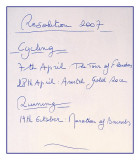 Resolution 2007
Cycling
7th April The Tour of Flanders
28th April Amstel Gold Race
Running
14th October Marathon of Brussels